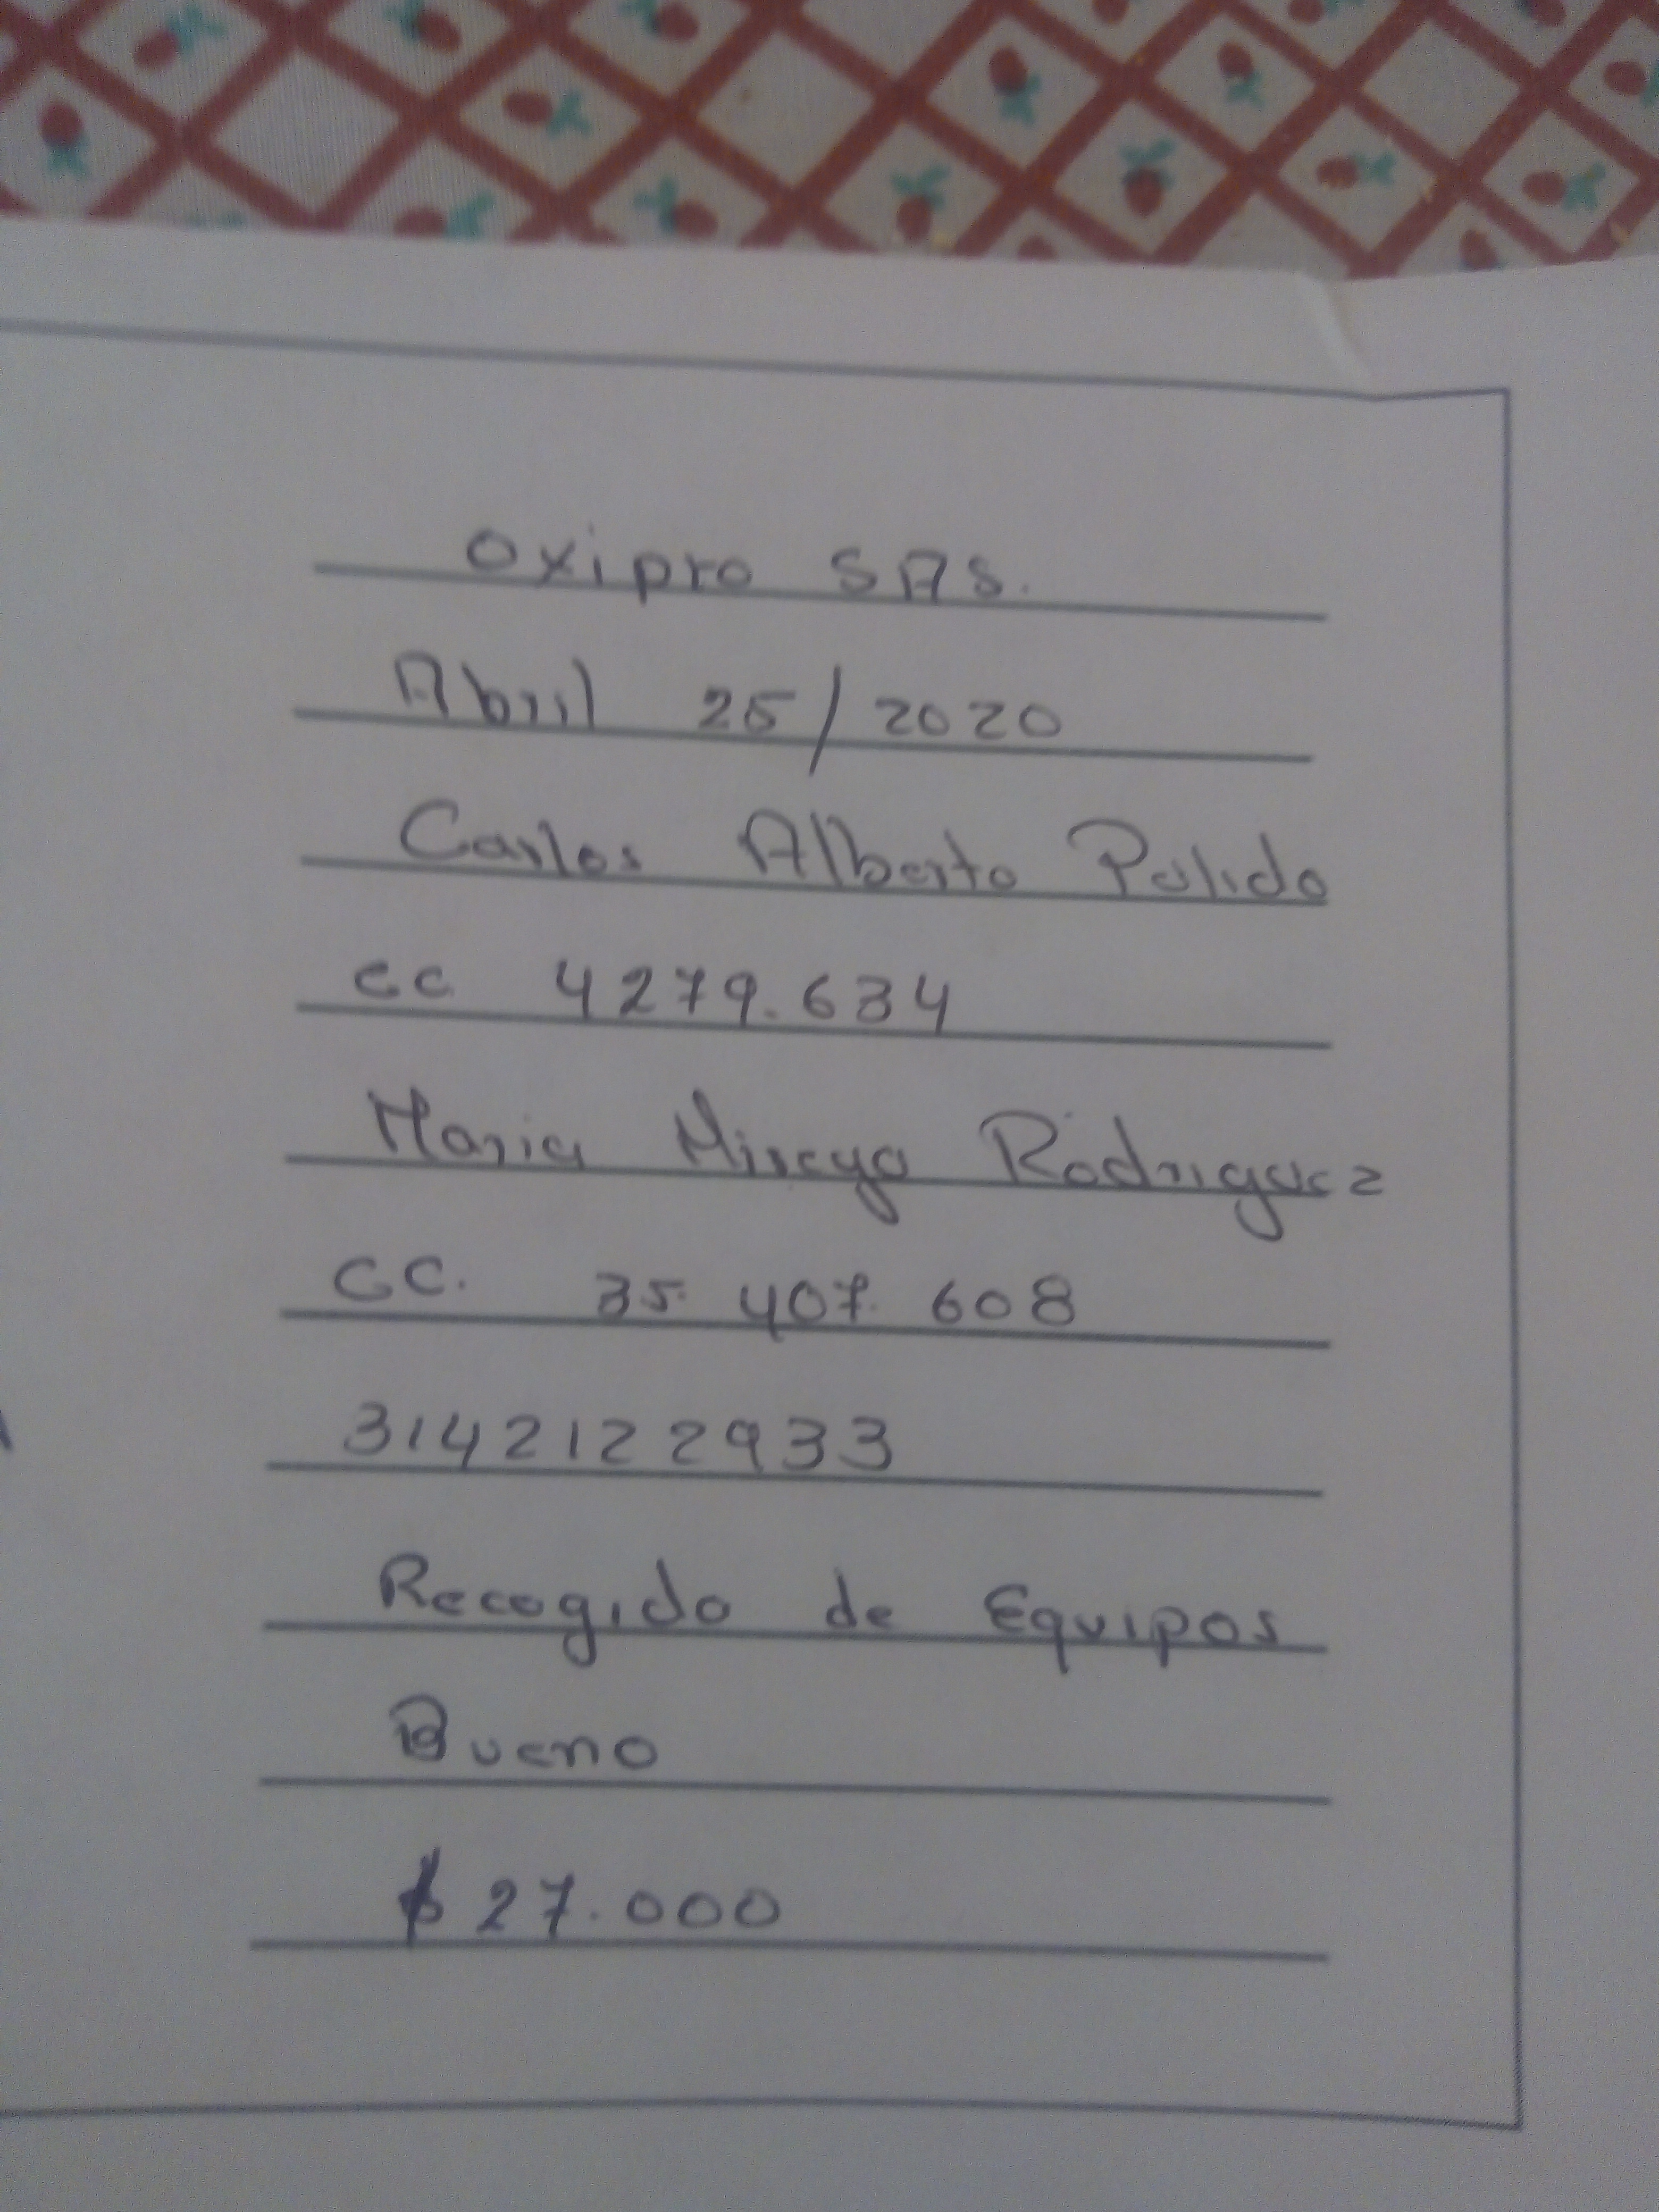 Oxipro SAS.
Abril 25/2020
Carlos Alberto Pulido
cc 4279.634
Maria Mireya Rodriguez
CC. 35.407.608
3142122933
Recogido de Equipos
Bueno
$ 27.000